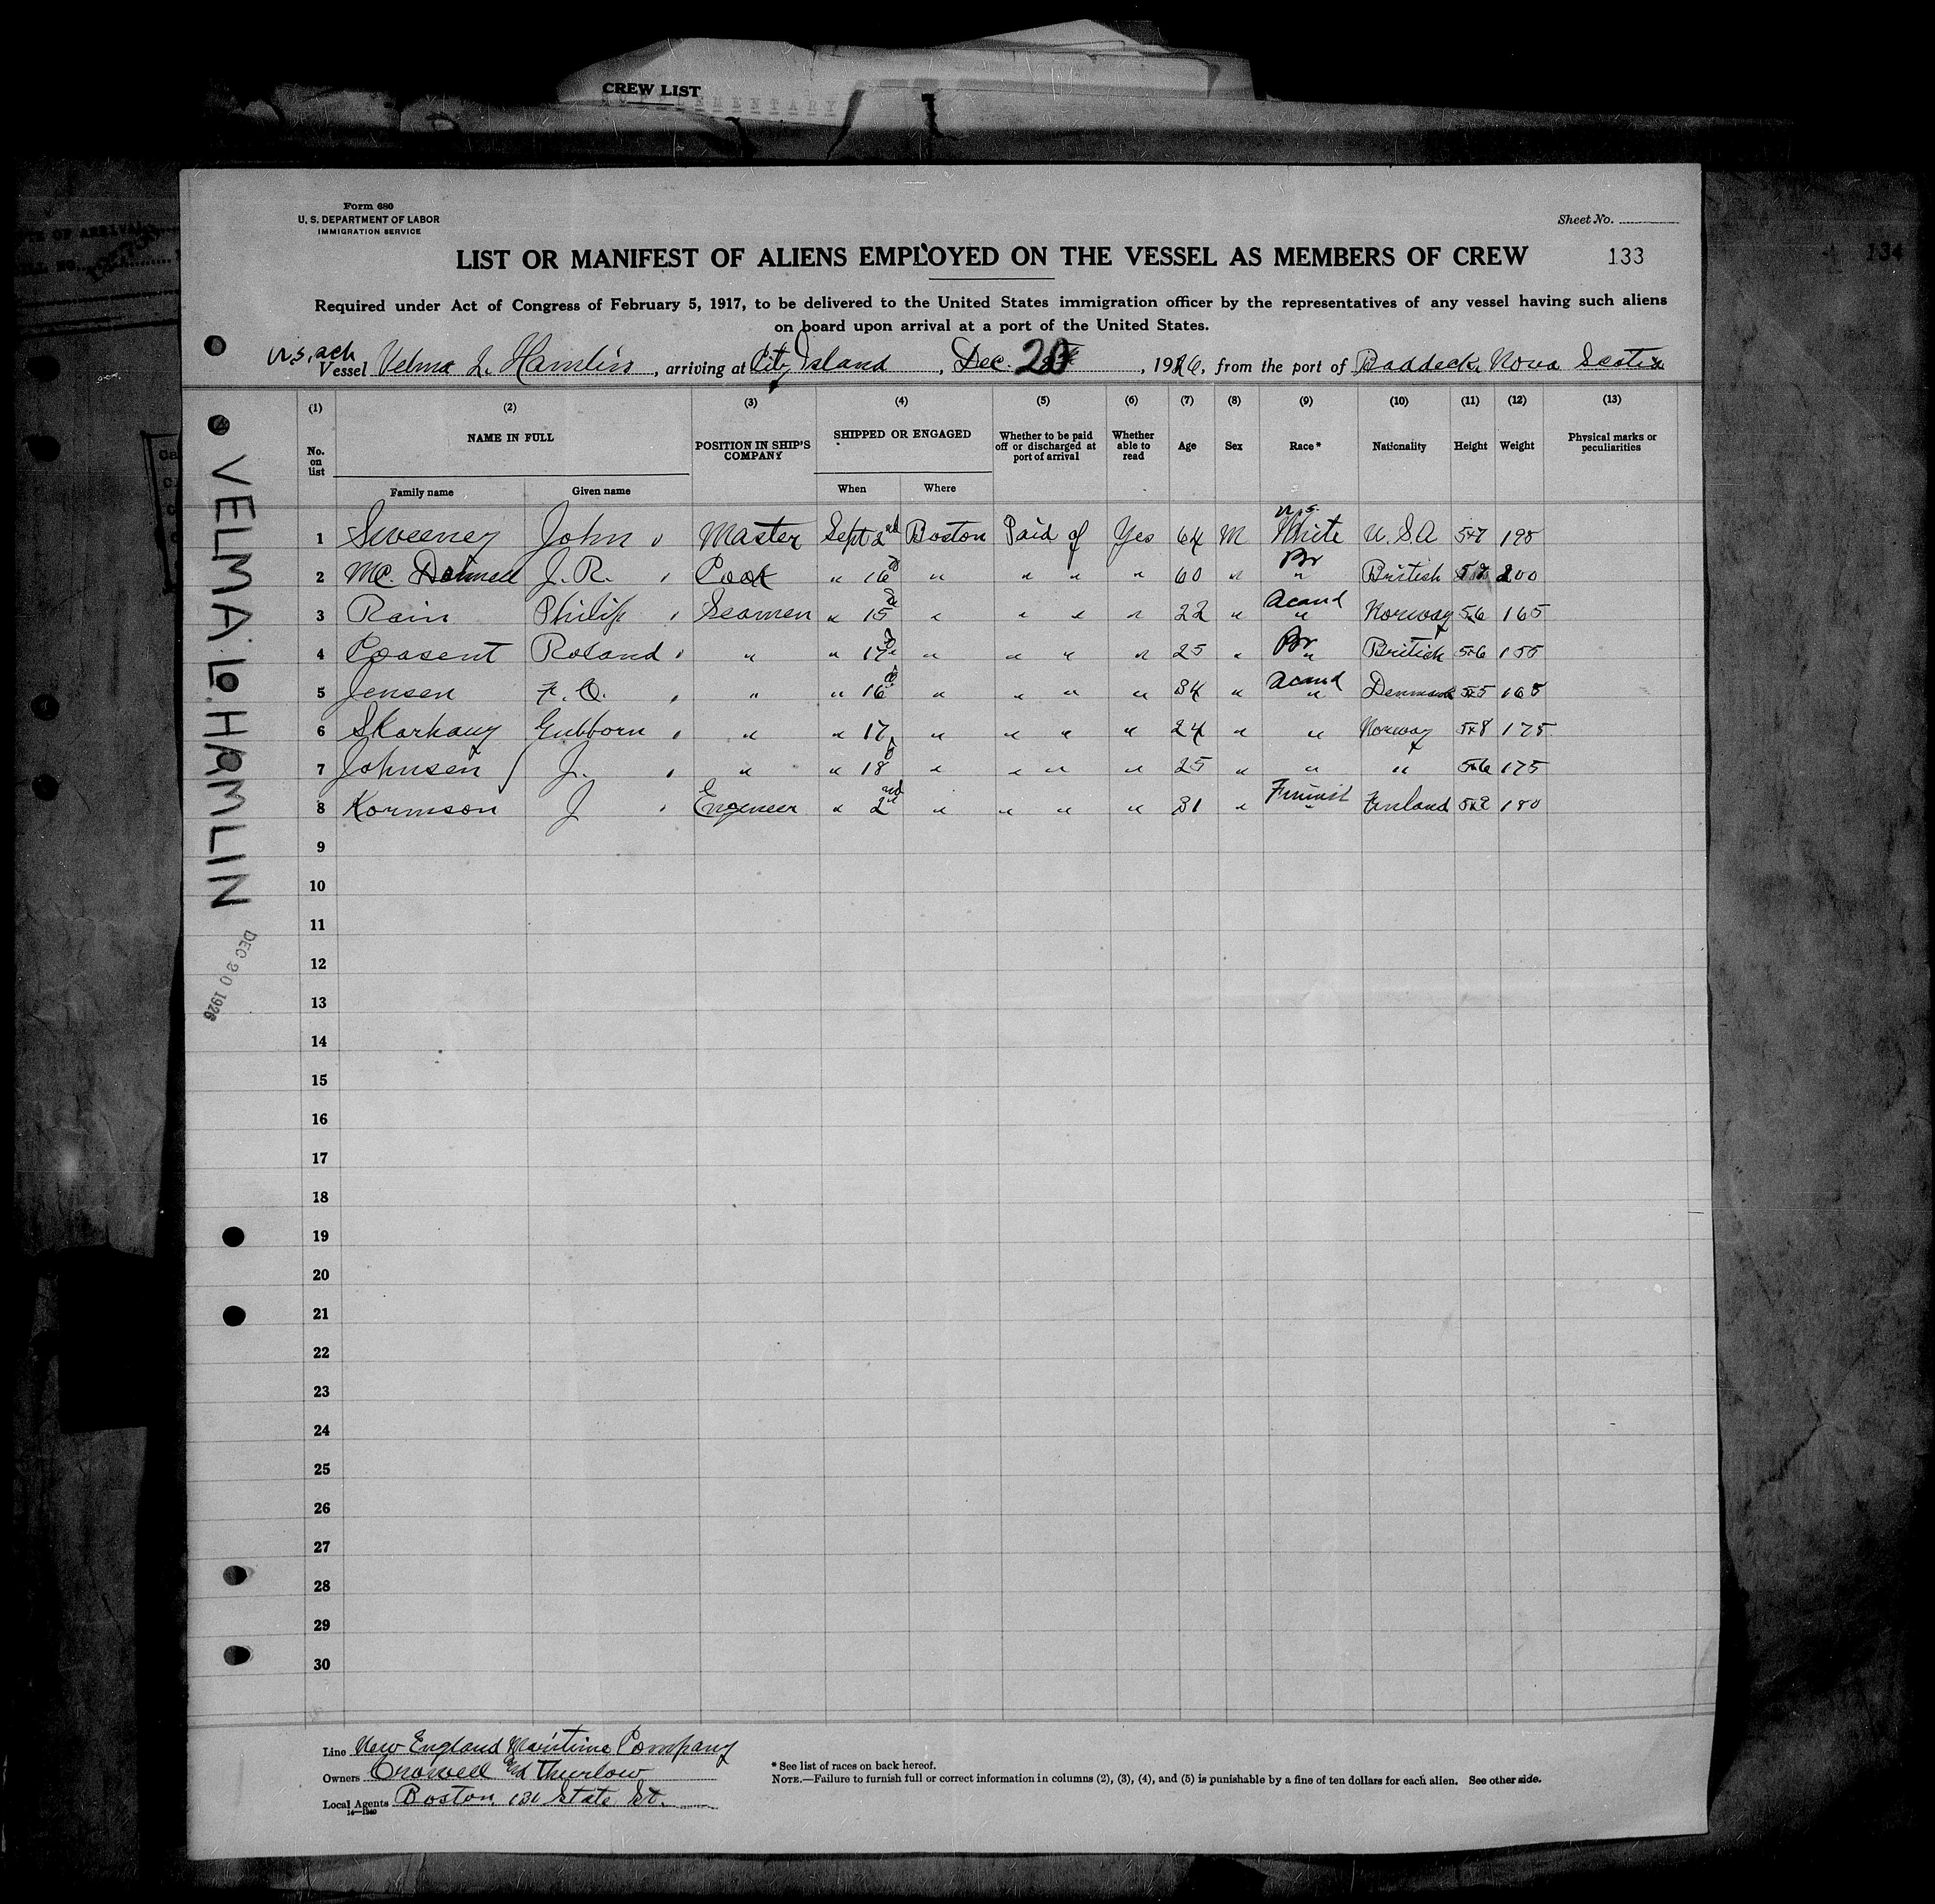 CREW LIST
SUPPLEMENTARY
Form 680
U. S. DEPARTMENT OF LABOR
IMMIGRATION SERVICE
Sheet No.
LIST OR MANIFEST OF ALIENS EMPLOYED ON THE VESSEL AS MEMBERS OF CREW
133
134
Required under Act of Congress of February 5, 1917, to be delivered to the United States immigration officer by the representatives of any vessel having such aliens
on board upon arrival at a port of the United States.
Vessel Velma L. Hamlin, arriving at City Island, Dec. 20, 1926, from the port of Baddeck, Nova Scotia
(1) (2) (3) (4) (5) (6) (7) (8) (9) (10) (11) (12) (13)
No. on list NAME IN FULL POSITION IN SHIP'S COMPANY SHIPPED OR ENGAGED Whether to be paid off or discharged at port of arrival Whether able to read Age Sex Race* Nationality Height Weight Physical marks or peculiarities
Family name Given name When Where
1 Sweeney John Master Sept 2nd Boston Paid of Yes 64 M White U.S.A 5-7
2 Mc. Donnell J. R. Cook " 16 " " " " 60 " Br " British 200
3 Rain Philip Seamen " 15 " " " " 22 " Scand " Norway 5-6 165
4 Roland " " 17 " " " " 25 " Br " British 5-6 155
5 Jensen " " 16 " " " " 34 " Scand " Denmark 5-5 165
6 " " 17 " " " " 24 " " Norway 5-8 175
7 Johnsen J. " " 18 " " " " 25 " " " 5-6 175
8 Kormson J Engeneer " 2nd " " " " 31 " Finnish " Finland 180
9
10
11
12
13
14
15
16
17
18
19
20
21
22
23
24
25
26
27
28
29
30
VELMA L. HAMLIN
DEC 20 1926
Line New England Maritime Company
Owners Crowell and Thurlow
Local Agents Boston, 131 State St.
14—1240
* See list of races on back hereof.
NOTE.—Failure to furnish full or correct information in columns (2), (3), (4), and (5) is punishable by a fine of ten dollars for each alien. See other side.